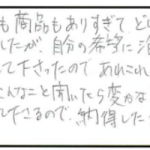 も商品もありすぎて ど
したが、自分の希望に沿
って下さったので あれこれ
こんなこと聞いたら変かな
したこるので、納得した